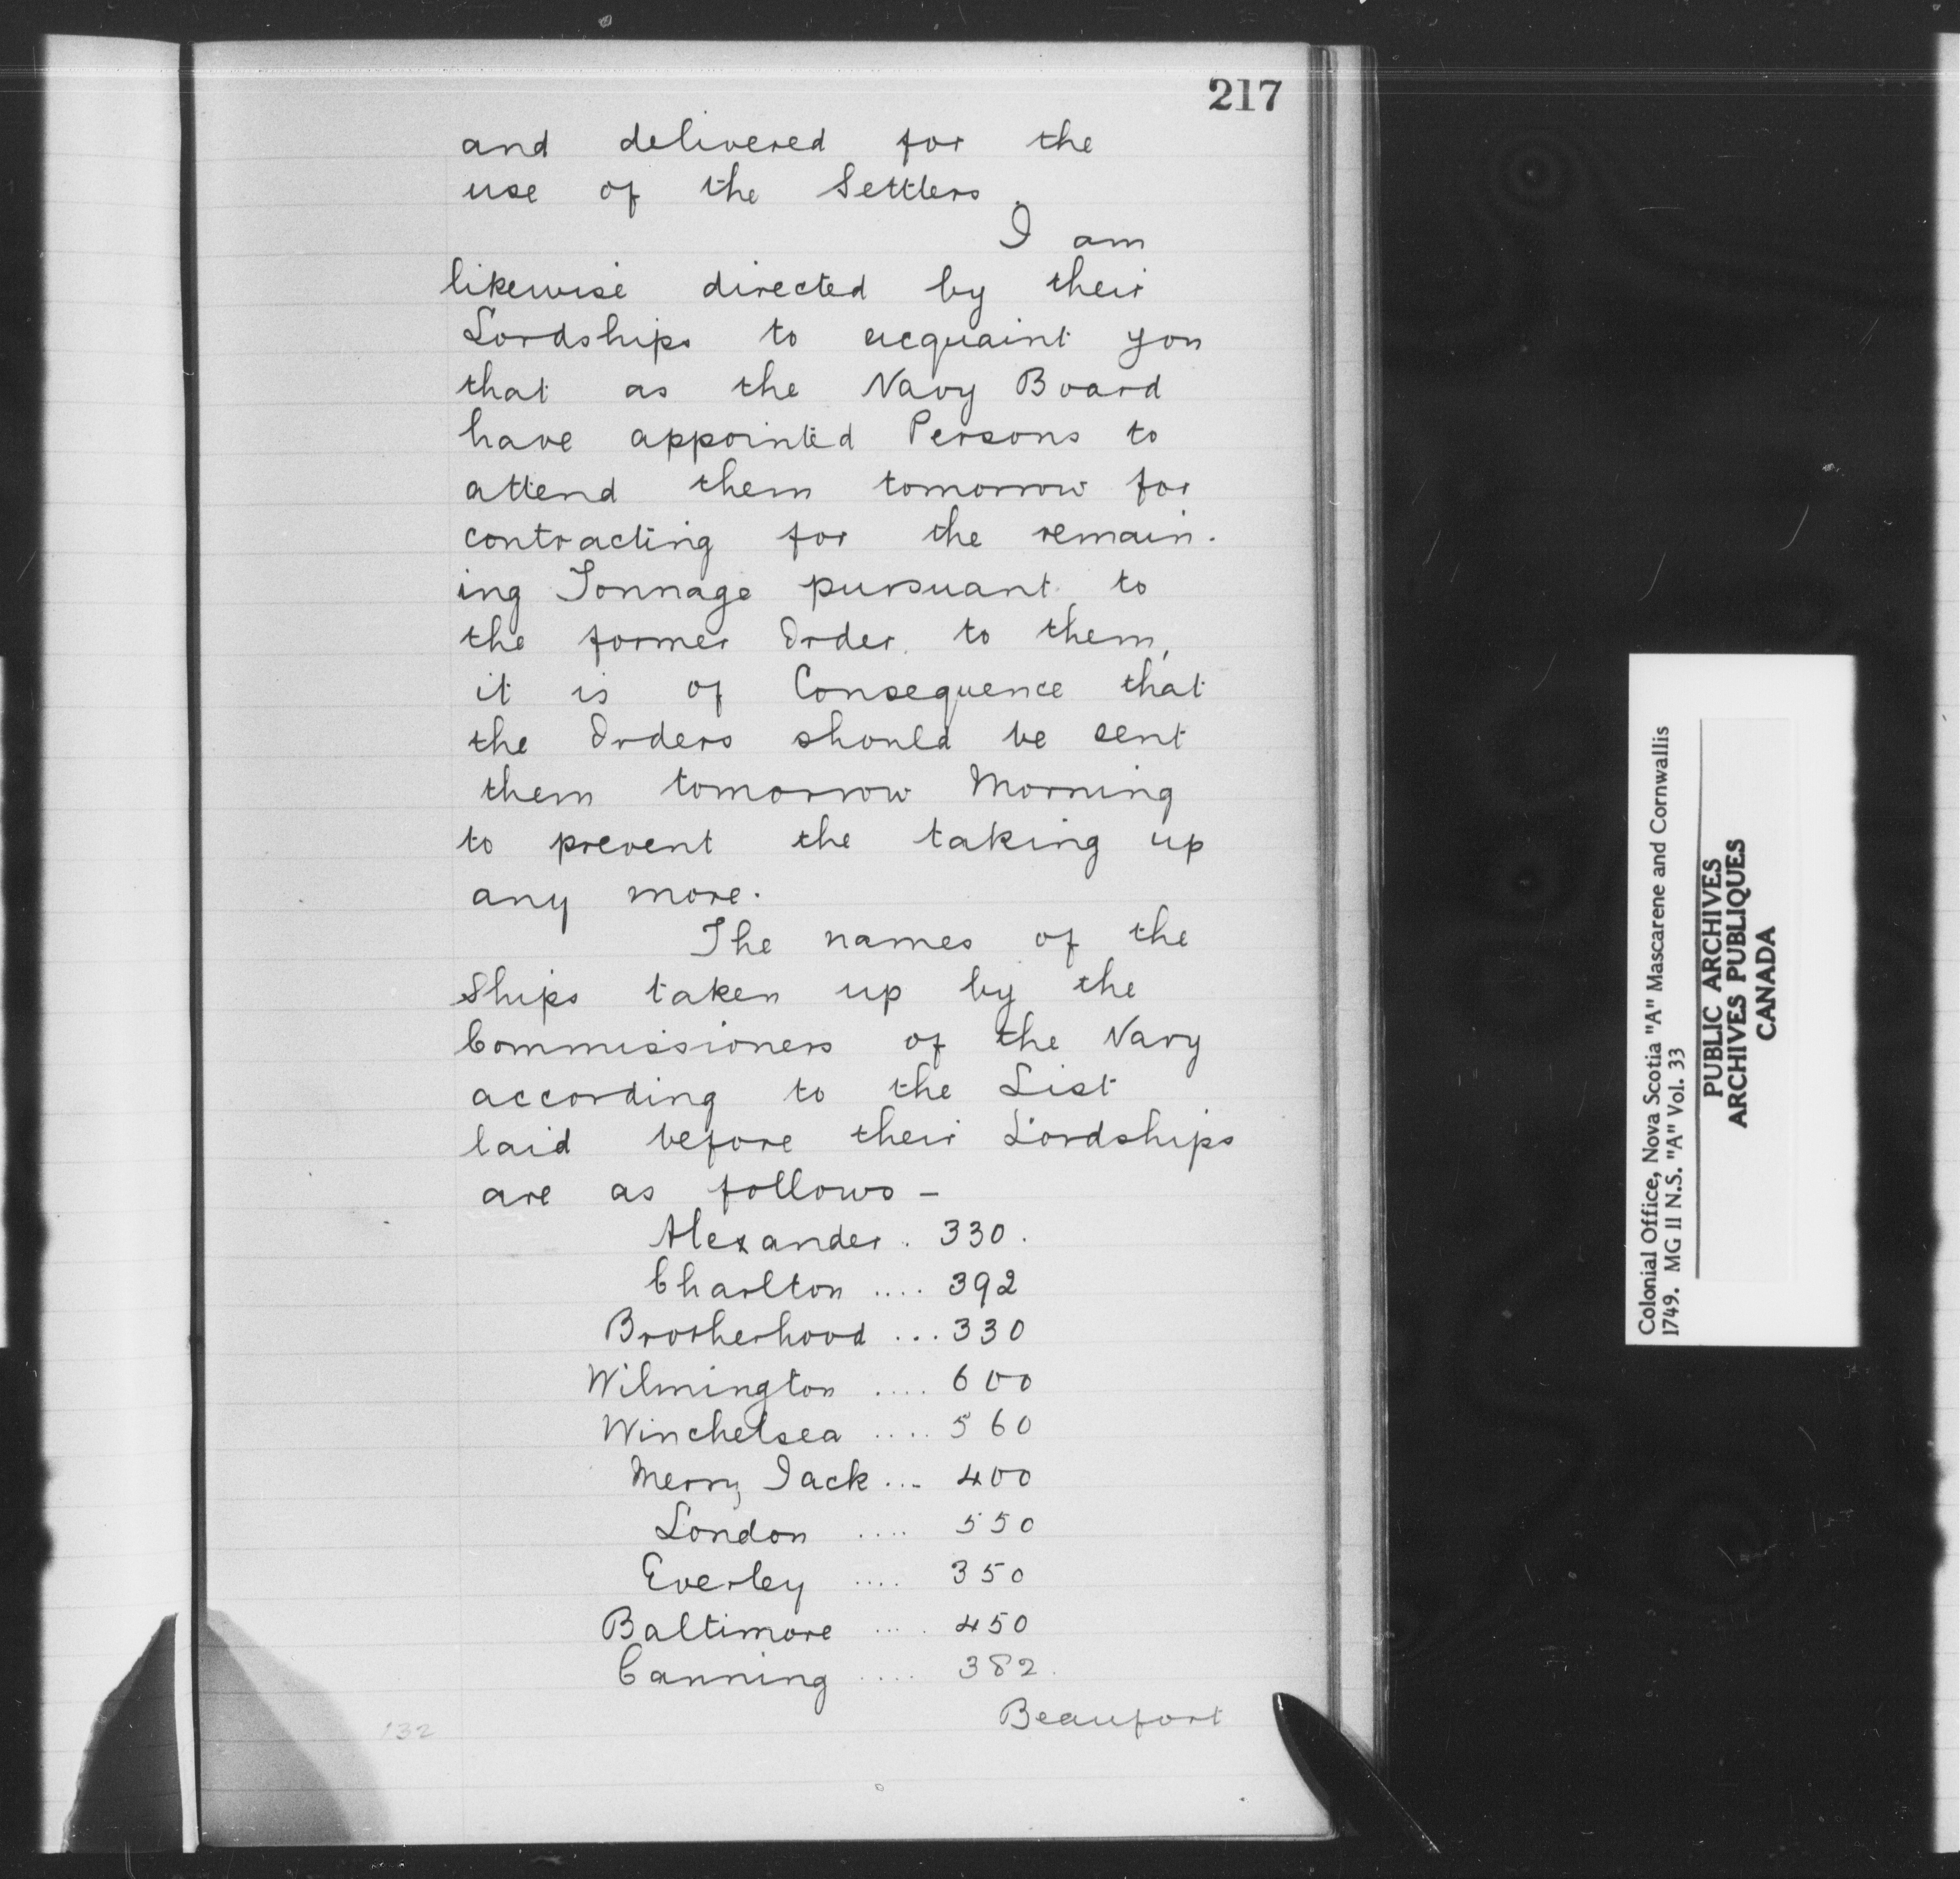 217
and delivered for the
use of the Settlers.
I am
likewise directed by their
Lordships to acquaint you
that as the Navy Board
have appointed Persons to
attend them tomorrow for
contracting for the remain-
ing Tonnage pursuant to
the former Order to them,
it is of Consequence that
the Orders should be sent
them tomorrow Morning
to prevent the taking up
any more.
The names of the
Ships taken up by the
Commissioners of the Navy
according to the List
laid before their Lordships
are as follows -
Alexander . 330 .
Charlton .... 392
Brotherhood ... 330
Wilmington .... 600
Winchelsea .... 560
Merry Jack ... 400
London .... 550
Everley .... 350
Baltimore .... 450
Canning .... 382.
Beaufort
132
Colonial Office, Nova Scotia "A" Mascarene and Cornwallis
1749. MG 11 N.S. "A" Vol. 33
PUBLIC ARCHIVES
ARCHIVES PUBLIQUES
CANADA